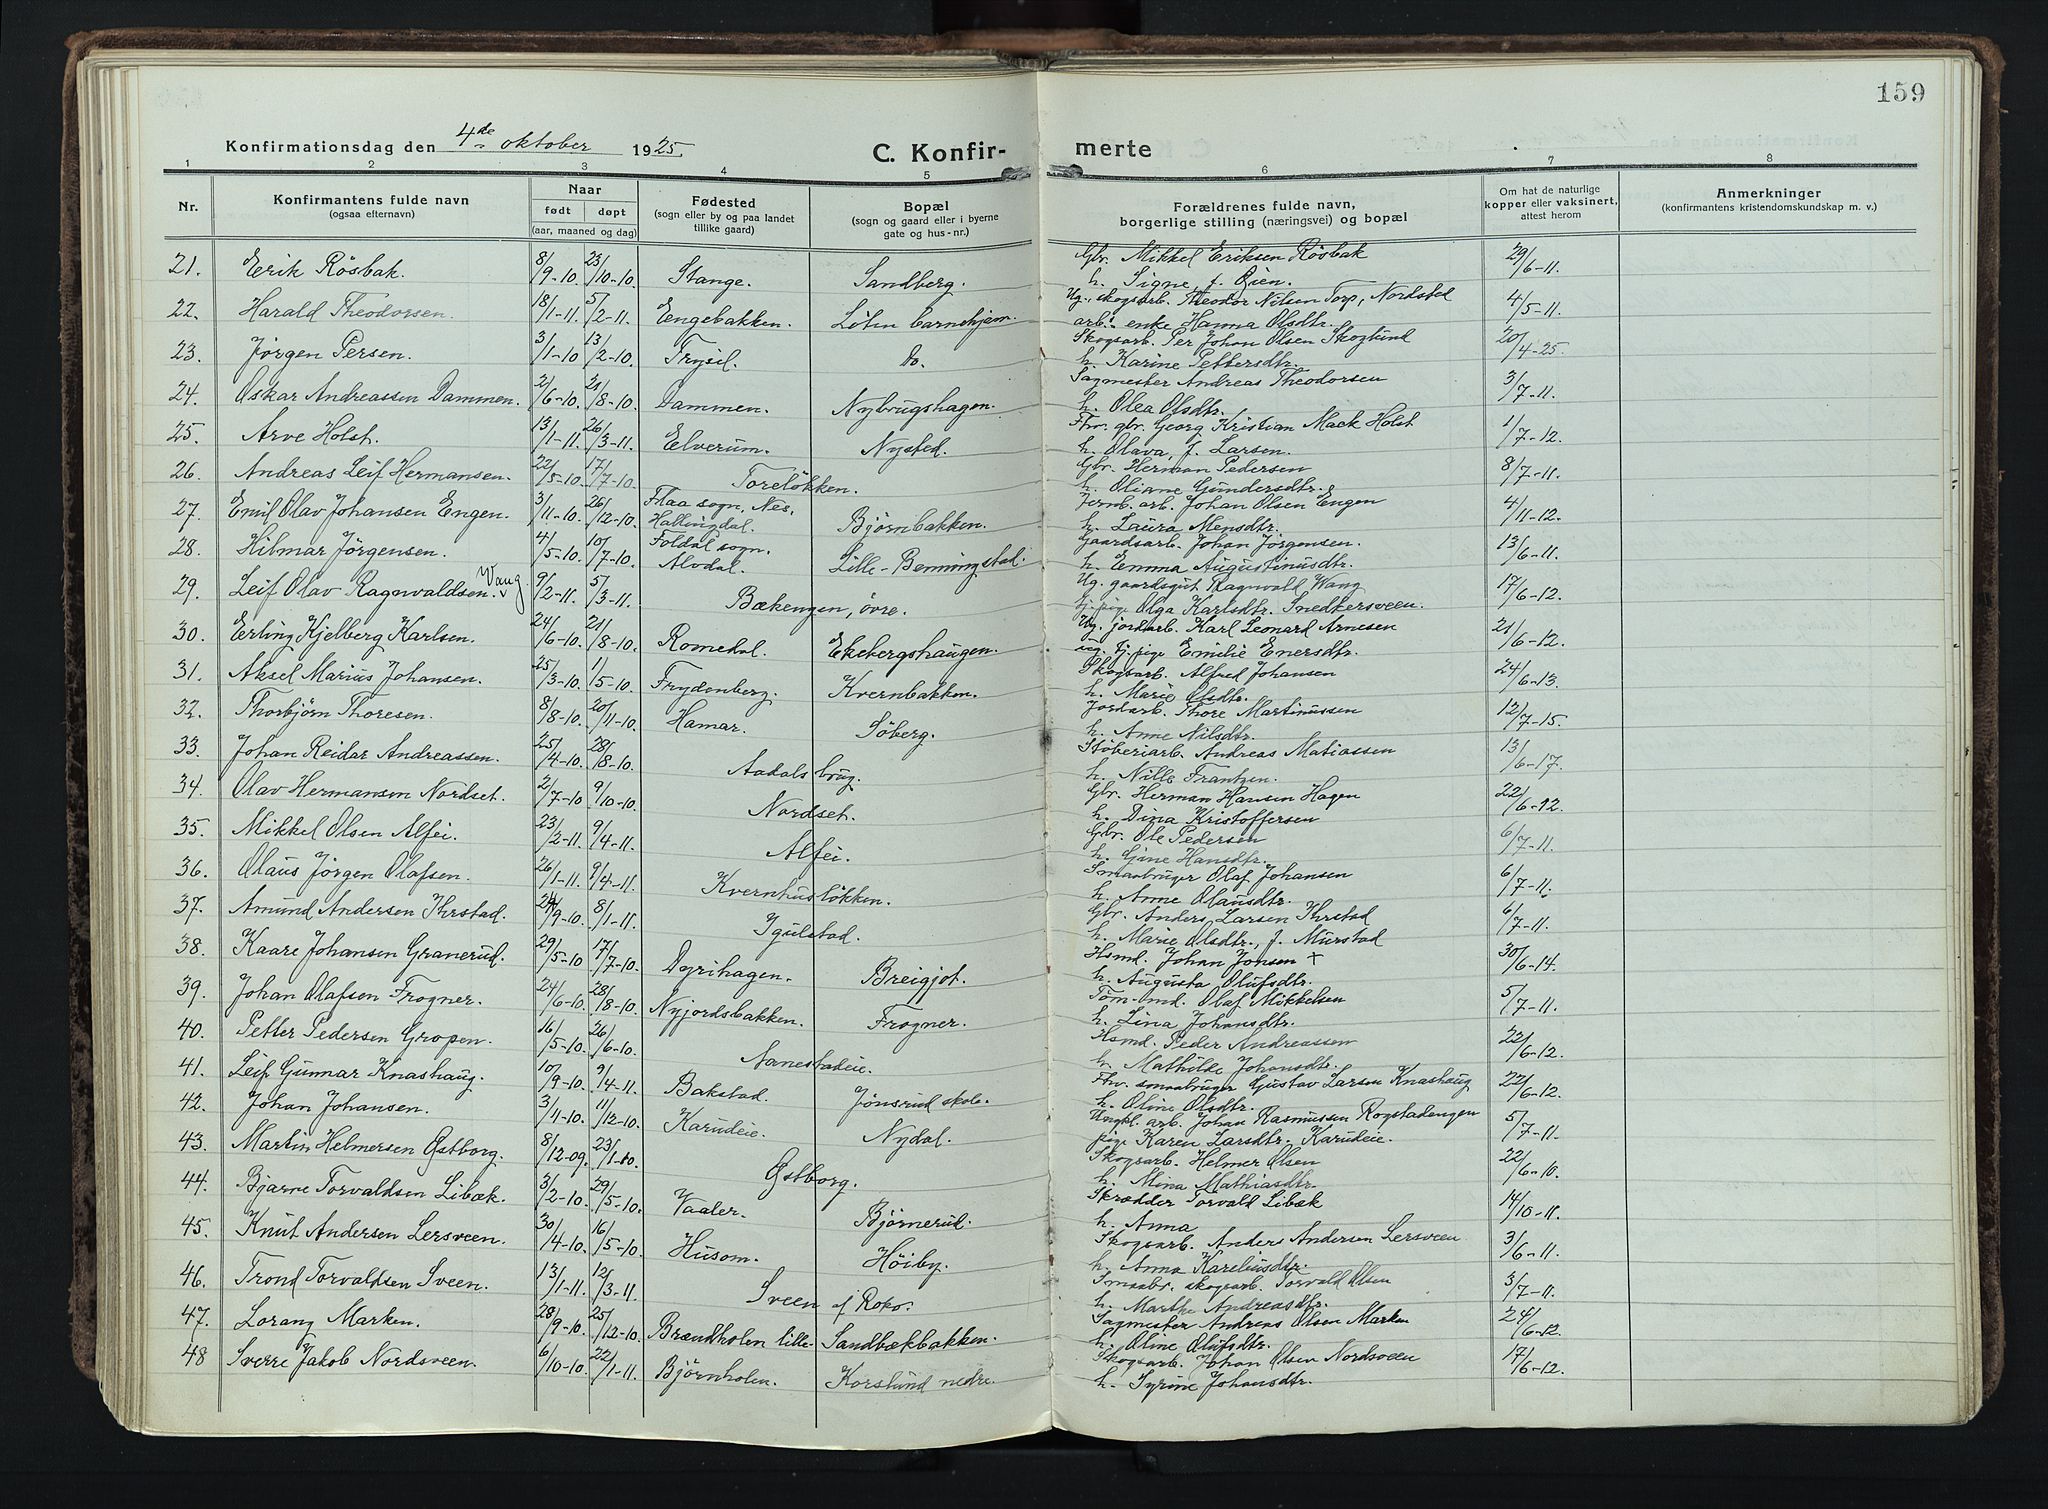 159
Konfirmationsdag den 4de oktober 1925.
C. Konfir-merte
1 2 3 4 5 6 7 8
Nr. | Konfirmantens fulde navn (ogsaa efternavn) | Naar født døpt (aar, maaned og dag) | Fødested (sogn eller by og paa landet tillike gaard) | Bopæl (sogn og gaard eller i byerne gate og hus-nr.) | Forældrenes fulde navn, borgerlige stilling (næringsvei) og bopæl | Om hat de naturlige kopper eller vaksinert, attest herom | Anmerkninger (konfirmantens kristendomskundskap m. v.)
21. Erik Rösbak. 8/9-10. 23/10-10. Stange. Sandberg. Gbr. Mikkel Eriksen Rösbak 29/6-11.
h. Signe, f. Öien.
22. Harald Theodorsen. 18/1-11. 5/2-11. Engebakken. Löten barnehjem. Ug. skogsarb. Theodor Nilsen Torp, Nordstad 4/5-11.
arb. enke Hanna Olsdtr.
23. Jörgen Persen. 3/1-10. 13/2-10. Trysil. Do. Skogsarb. Per Johan Olsen Skoglund 20/4-25.
h. Karine Pettersdtr.
24. Oskar Andreassen Dammen. 2/6-10. 21/8-10. Dammen. Nybrugshagen. Sagmester Andreas Theodorsen 3/7-11.
h. Olea Olsdtr.
25. Arve Holst. 13/1-11. 26/3-11. Elverum. Nysted. Fhv. gbr. Georg Kristian Mack Holst 1/7-12.
h. Olava, f. Larsen.
26. Andreas Leif Hermansen. 22/5-10. 17/7-10. Torelökken. Gbr. Herman Pedersen 8/7-11.
h. Oliane Gundersdtr.
27. Emil Olav Johansen Engen. 3/11-10. 26/12-10. Flaa sogn, Nes, Hallingdal. Björnbakken. Jernb. arb. Johan Olsen Engen 4/11-12.
h. Laura Mensdtr.
28. Hilmar Jörgensen. 4/5-10. 10/7-10. Foldal sogn. Alvdal. Lille-Benningstad. Gaardsarb. Johan Jörgensen. 13/6-11.
h. Emma Augustinusdtr.
29. Leif Olav Ragnvaldsen Vang. 9/2-11. 5/3-11. Bækengen, övre. Ug. gaardsgut Ragnvald Wang 17/6-12.
tj. pige Olga Karlsdtr. Snedkersveen.
30. Erling Kjelberg Karlsen. 24/6-10. 21/8-10. Romedal. Ekebergshaugen. Ug. jordarb. Karl Leonard Arnesen 21/6-12.
ug. tj. pige Emilie Enersdtr.
31. Aksel Marius Johansen. 25/3-10. 1/5-10. Frydenberg. Kvernbakken. Skogsarb. Alfred Johansen 24/6-13.
h. Marie Olsdtr.
32. Thorbjörn Thoresen. 8/8-10. 20/11-10. Hamar. Söberg. Jordarb. Thore Martinussen 12/7-15.
h. Anne Nilsdtr.
33. Johan Reidar Andreassen. 25/4-10. 28/8-10. Aadalsbrug. Stöberiarb. Andreas Matiassen 13/6-17.
h. Nille Frantzen.
34. Olav Hermansen Nordset. 2/7-10. 9/10-10. Nordset. Gbr. Herman Hansen Hagen 22/6-12.
h. Dina Kristoffersen
35. Mikkel Olsen Alfei. 23/2-11. 9/4-11. Alfei. Gbr. Ole Pedersen 6/7-11.
h. Gine Hansdtr.
36. Olaus Jörgen Olafsen. 26/1-11. 9/4-11. Kvernhuslökken. Smaabruger Olaf Johansen 6/7-11.
h. Anne Olausdtr.
37. Amund Andersen Ihrstad. 24/9-10. 8/1-11. Igulstad. Gbr. Anders Larsen Ihrstad 6/7-11.
h. Marie Olsdtr., f. Murstad
38. Kaare Johansen Granerud. 29/5-10 17/7-10. Dyrihagen. Breigjot. Hsmd. Johan Jonsen + 30/6-14.
h. Augusta Olufsdtr.
39. Johan Olafsen Frogner. 24/6-10. 28/8-10. Nyjordsbakken. Frogner. Töm-md. Olaf Mikkelsen 5/7-11.
h. Lina Johansdtr.
40. Petter Pedersen Gropen. 16/5-10. 26/6-10. Aanestadeie. Hsmd. Peder Andreassen 22/6-12.
h. Mathilde Johansdtr.
41. Leif Gunnar Knashaug. 10/9-10. 9/4-11. Bakstad. Jönsrud skole. Fhv. smaabruger Gustav Larsen Knashaug 22/6-12.
h. Oline Olsdtr.
42. Johan Johansen. 3/11-10. 11/12-10. Karudeie. Nydal. Ungkl. arb. Johan Rasmussen Rogstadengen 5/7-11.
pige Karen Larsdtr. Karudeie.
43. Martin Helmersen Östborg. 8/12-09. 23/1-10. Östborg. Skogsarb. Helmer Olsen 22/6-10.
h. Mina Mathiasdtr.
44. Bjarne Torvaldsen Libæk. 3/2-10. 29/5-10. Vaaler. Björnerud. Skrædder Torvald Libæk 14/10-11.
h. Anna
45. Knut Andersen Lersveen. 30/4-10. 16/5-10. Husom. Höiby. Skogsarb. Anders Andersen Lersveen 3/6-11.
h. Anna Kareliusdtr.
46. Trond Torvaldsen Sveen. 13/1-11. 12/3-11. Sveen af Roko. Smaabr. skogsarb. Torvald Olsen 3/7-11.
h. Marthe Andreasdtr.
47. Lorang Marken. 28/9-10. 25/12-10. Brændholen lille. Sandbækbakken. Sagmester Andreas Olsen Marken 24/6-12.
h. Oline Olufsdtr.
48 Sverre Jakob Nordsveen. 6/10-10. 22/1-11. Björnholen. Korslund nedre. Skogsarb. Johan Olsen Nordsveen 17/6-12.
h. Syrine Johansdtr.